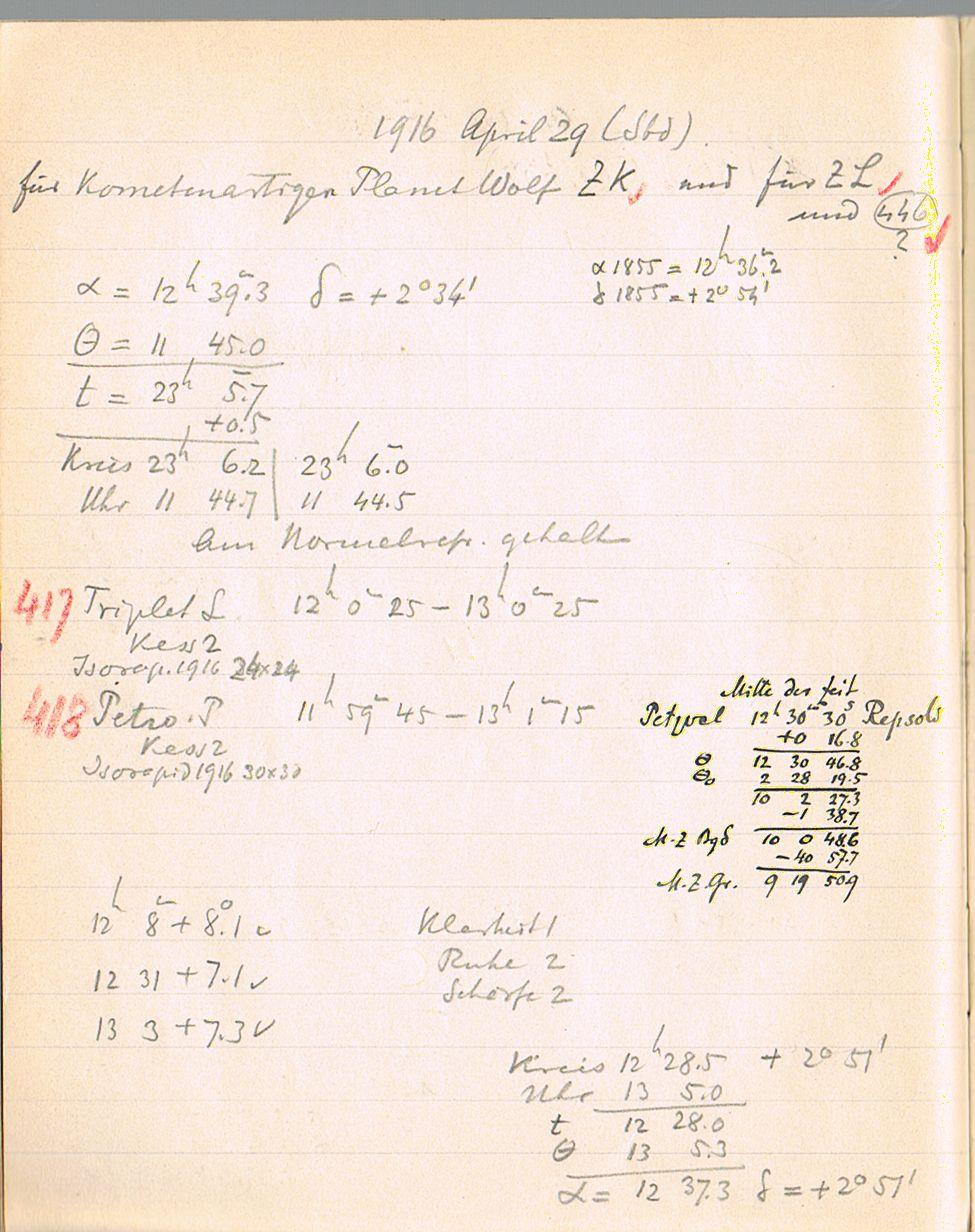 1916 April 29 (Sbd)
für Kometenartigen Planet Wolf ZK, und für ZL,
und 446
?
α = 12ʰ 39ᵐ.3 δ = +2°34'
α 1855 = 12ʰ 36ᵐ.2
δ 1855 = +2° 54'
Θ = 11 45.0
t = 23ʰ 5.7
+0.5
Kreis 23ʰ 6.2 | 23ʰ 6.0
Uhr 11 44.7 | 11 44.5
am Normalrefr. gehalten
417 Triplet L 12ʰ 0ᵐ 25 – 13ʰ 0ᵐ 25
Kass 2
Isorap. 1916 24×24
418 Petzv. P 11ʰ 59ᵐ 45 – 13ʰ 1ᵐ 15
Kass 2
Isorapid 1916 30×30
Mitte der Zeit
Petzval 12ʰ 30ᵐ 30ˢ Repsold
+0 16.8
Θ 12 30 46.8
Θ₀ 2 28 19.5
10 2 27.3
–1 38.7
M.Z Bgd 10 0 48.6
–40 57.7
M.Z.Gr. 9 19 50.9
12ʰ 8ᵐ + 8.1° ✓
12 31 + 7.1 ✓
13 3 + 7.3 ✓
Klarheit 1
Ruhe 2
Schärfe 2
Kreis 12ʰ 28.5 + 2° 51'
Uhr 13 5.0
t 12 28.0
Θ 13 5.3
α = 12 37.3 δ = +2° 51'